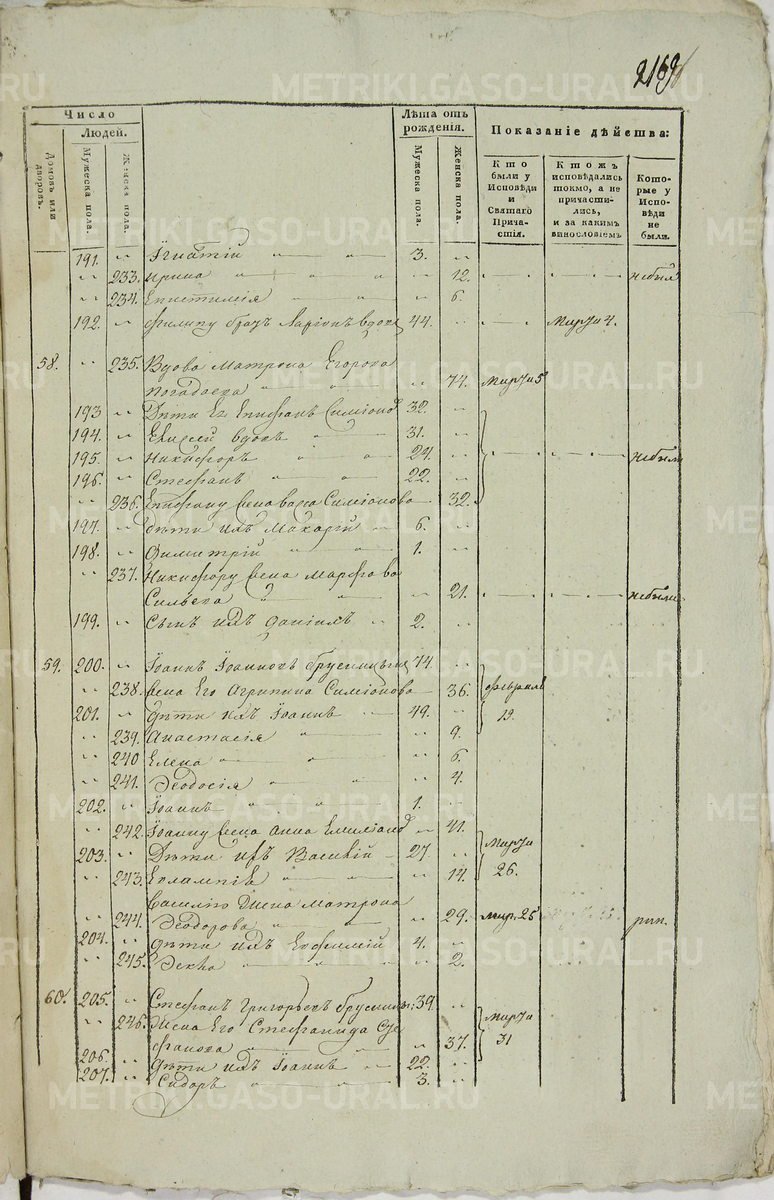 2169
Число
Людей.
Домовъ или дворовъ.
Мужеска пола.
Женска пола.
Лѣта отъ рожденія.
Мужеска пола.
Женска пола.
Показаніе дѣйства:
Кто были у Исповѣди и Святаго Причастія.
Ктожъ исповѣдались токмо, а не причастились, и за какимъ винословіемъ
Которые у Исповѣди не были.
191. " Игнатій " " 3. "
" 233. Ирина " " " 12. небыл
" 234. Епистимія " " " 6.
192. " Филипу братъ Ларіонъ вдовъ 44. " Марта 4.
58. " 235. Вдова Матрона Егорова
" 74. Марта 5
193 " Дѣти Ея Епифанъ Симіонов 32. "
194. " Елисей вдовъ " 31. "
195. " Никифоръ " " 24. " небыли
196. " Стефанъ " " 22. "
" 236. Епифану жена Симіонова 32.
197. " Дѣти ихъ Макарій " 6. "
198. " Димитрій " " 1. "
" 237. Никифору жена Марфа Ва
сильева " " " 21. небыли
199. " Сынъ ихъ Даніилъ " 2. "
59. 200. " Іоаннъ Іоанновъ Брусницынъ 74. "
" 238. жена Его Агрипина Симіонова 36. февраля
201. " Дѣти ихъ Іоаннъ 49. " 19.
" 239. Анастасія " " 9.
" 240 Елена " " " 6.
" 241. Ѳеодосія " " 4.
202. " Іоаннъ " " 1. "
" 242. Іоанну жена Анна Емиліанов " 41. Марта
203. " Дѣти ихъ Василій 27. "
" 243. Евлампія " " " 14. 26.
Василію жена Матрона
" 244. Ѳеодорова " " " 29. Мар. 25
204. " Дѣти ихъ Евфимій 4. "
" 245. Ѳекла " " " 2.
60. 205. " Стефанъ Григорьевъ Брусницы: 39. "
" 246. жена Его Стефанида Сте Марта
фанова " " 37. 31
206. " Дѣти ихъ Іоаннъ " 22. "
207. " Сидоръ " " 3. "
METRIKI.GASO-URAL.RU